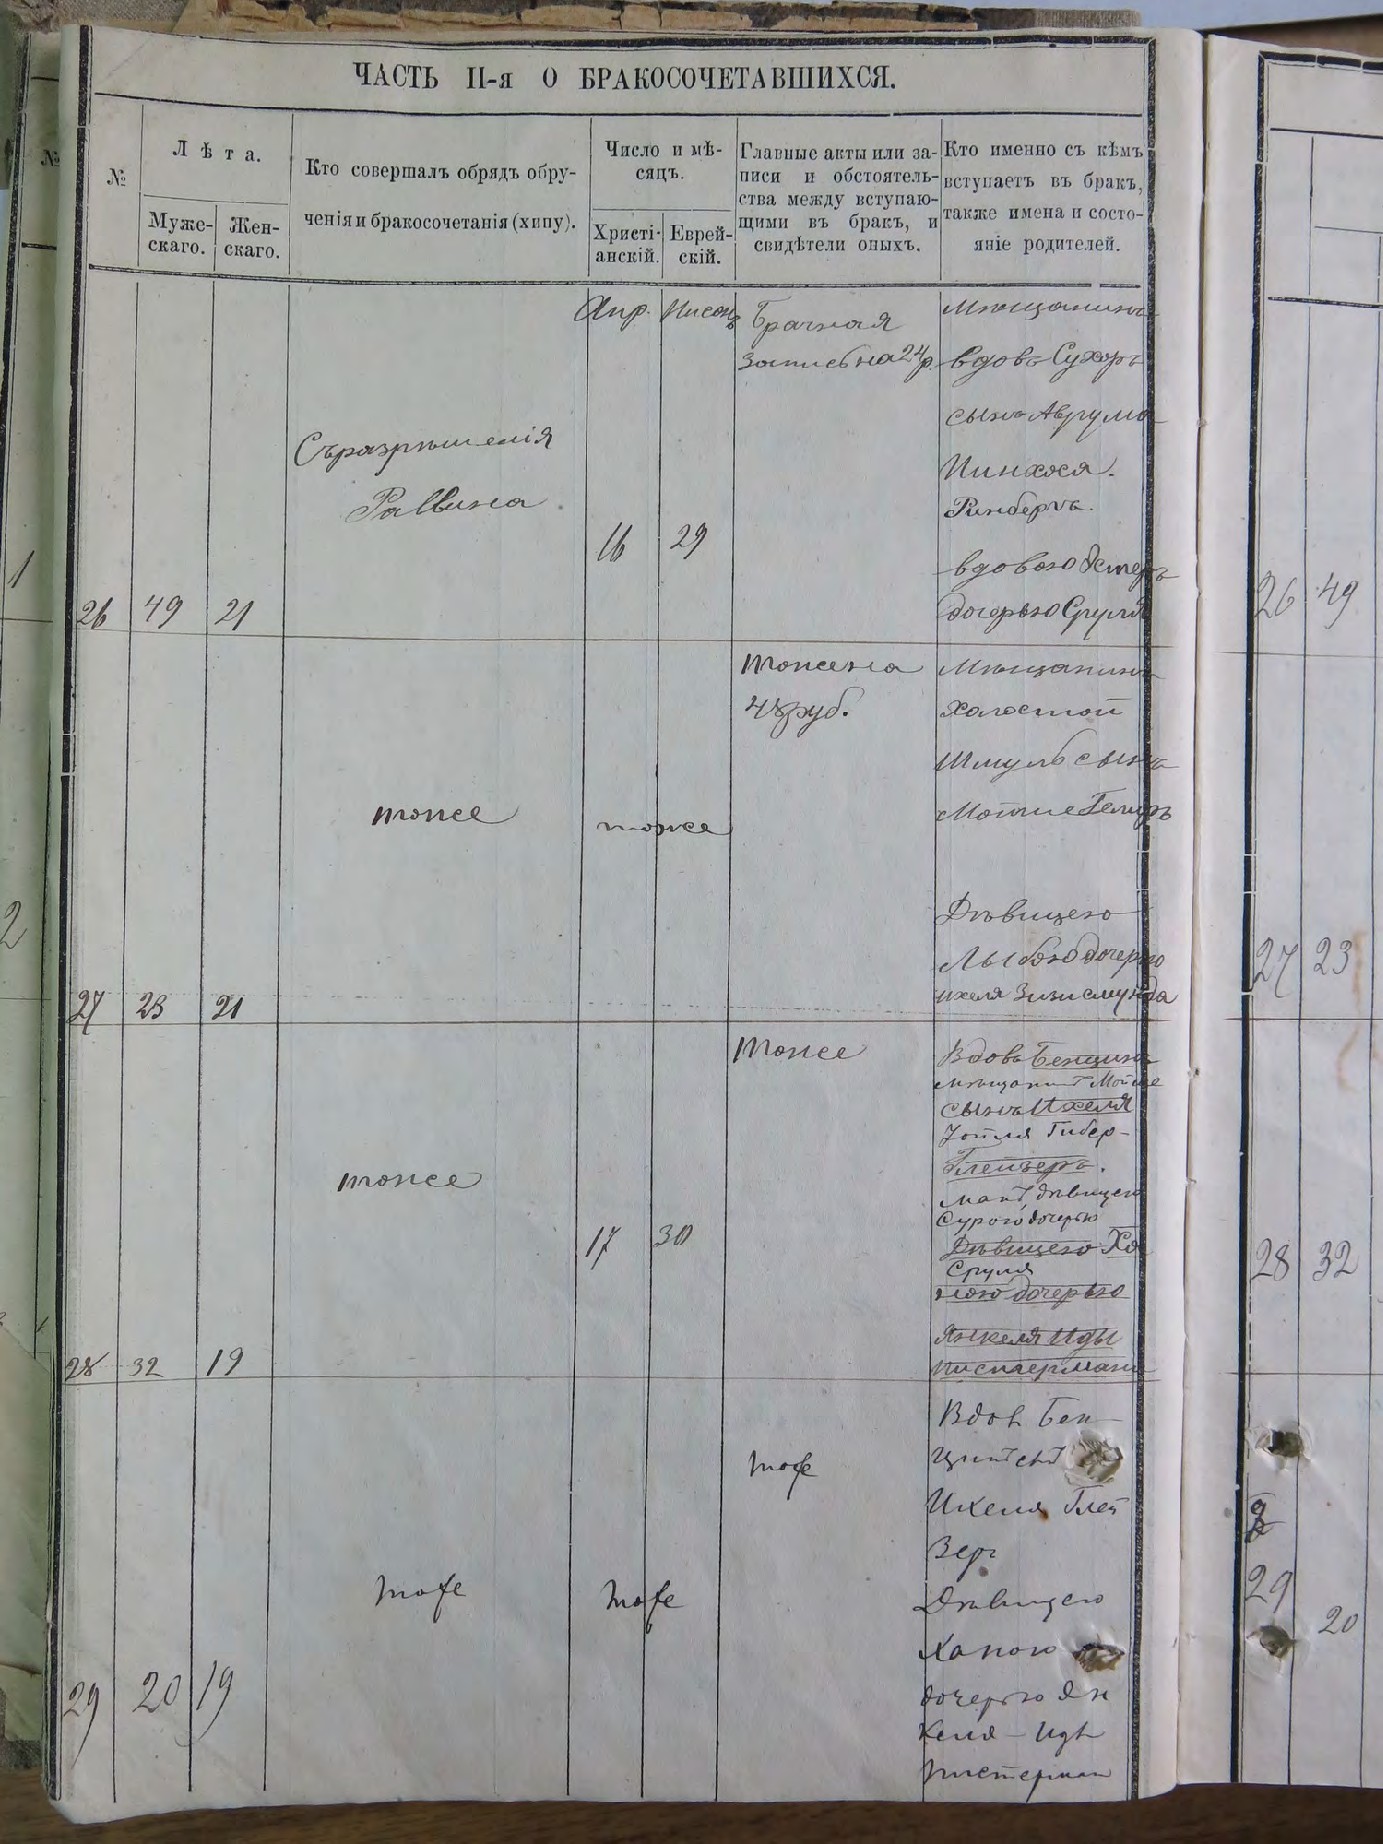 ЧАСТЬ II-я О БРАКОСОЧЕТАВШИХСЯ.
№
Лѣта.
Муже-
скаго.
Жен-
скаго.
Кто совершалъ обрядъ обру-
ченія и бракосочетанія (хипу).
Число и мѣ-
сяцъ.
Христі-
анскій.
Еврей-
скій.
Главные акты или за-
писи и обстоятель-
ства между вступаю-
щими въ бракъ, и
свидѣтели оныхъ.
Кто именно съ кѣмъ
вступаетъ въ бракъ,
также имена и состо-
яніе родителей.
26 49 21
Съ разрѣшенія
Раввина
Апр. Нисонъ
16 29
Брачная
запись на 24 р.
Мѣщанинъ
вдовъ Сухеръ
сынъ Аврума
Пинхася
вдовою Эстеръ
дочерью Сруля
27 23 21
тоже
тоже
тоже на
48 руб.
Мѣщанинъ
холостой
Шмуль сынъ
Дѣвицею
дочерью
Ихеля Зизисмунда
28 32 19
тоже
17 30
тоже
Вдовъ Бенционъ
мѣщанинъ Мойше
сынъ Ихеля
Гибер-
Глейзеръ.
манъ, дѣвицею
Сурою дочерью
Дѣвицею Ха
Сруля
ною дочерью
Янкеля Иды
Пистерманъ
29 20 19
тоже
тоже
тоже
Вдовъ Бен
Ихеля Глей
зеръ
Дѣвицею
Ханою
дочерью Ян
келя - Иды
Пистерман
1
2
№
26 49
27 23
28 32
29
20